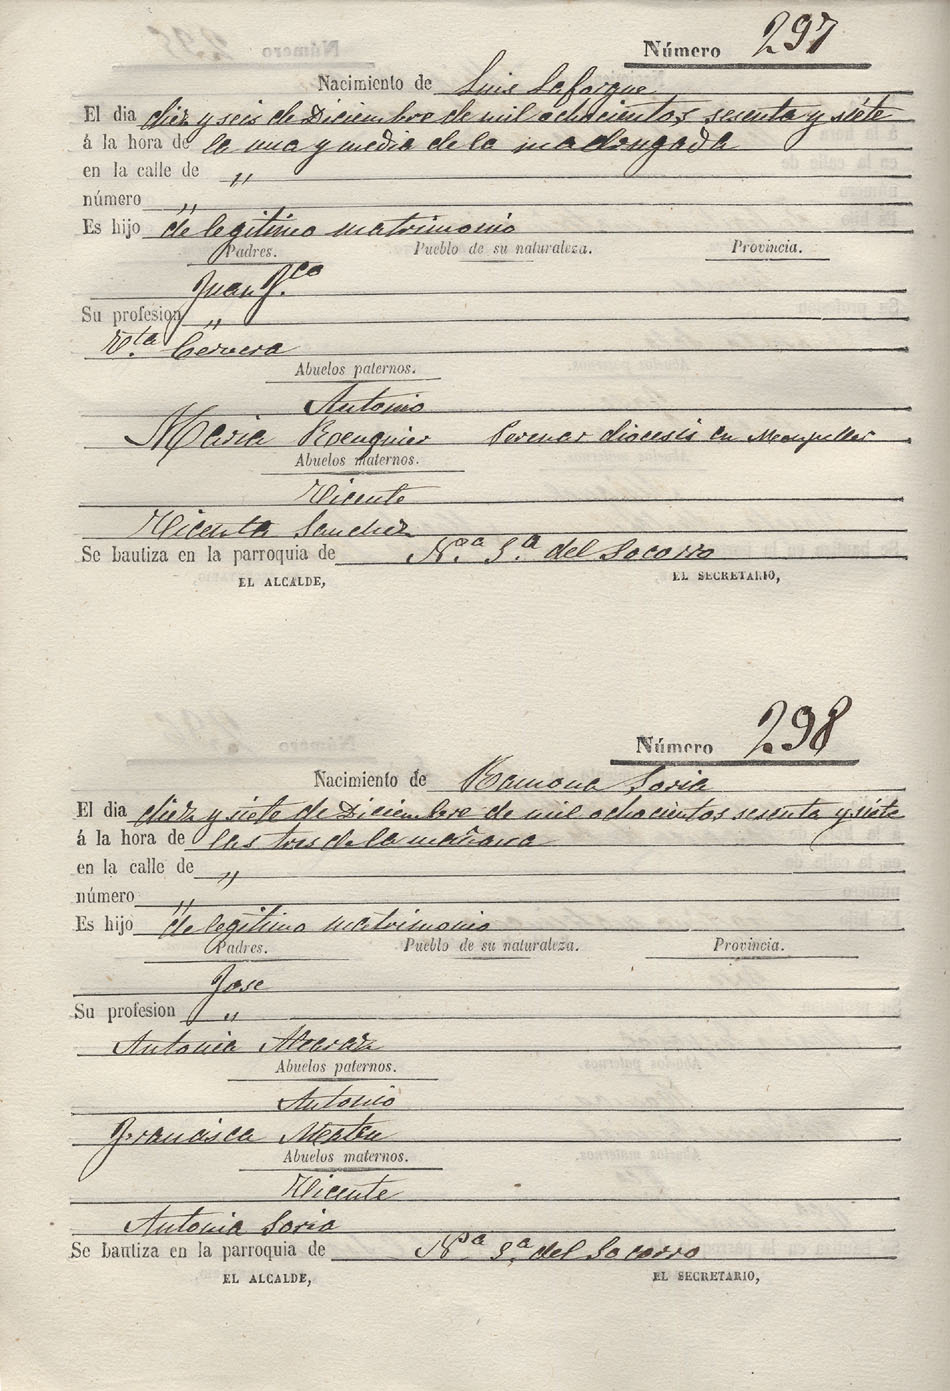 Número 297
Nacimiento de Luis Laforgue
El dia diez y seis de Diciembre de mil ochocientos sesenta y siete
á la hora de la una y media de la madrugada
en la calle de "
número "
Es hijo de legitimo matrimonio
Padres. Pueblo de su naturaleza. Provincia.
Juan F.co
Su profesion "
V.ta Cervera
Abuelos paternos.
Antonio
Maria Rouquier diocesis en
Abuelos maternos.
Vicente
Vicenta Sanchez
Se bautiza en la parroquia de N.a S.a del Socorro
EL ALCALDE, EL SECRETARIO,
Número 298
Nacimiento de Ramona Soria
El dia diez y siete de Diciembre de mil ochocientos sesenta y siete
á la hora de las tres de la mañana
en la calle de "
número "
Es hijo de legitimo matrimonio
Padres. Pueblo de su naturaleza. Provincia.
Jose
Su profesion "
Antonia Alcaraz
Abuelos paternos.
Antonio
Francisca
Abuelos maternos.
Vicente
Antonia Soria
Se bautiza en la parroquia de N.a S.a del Socorro
EL ALCALDE, EL SECRETARIO,